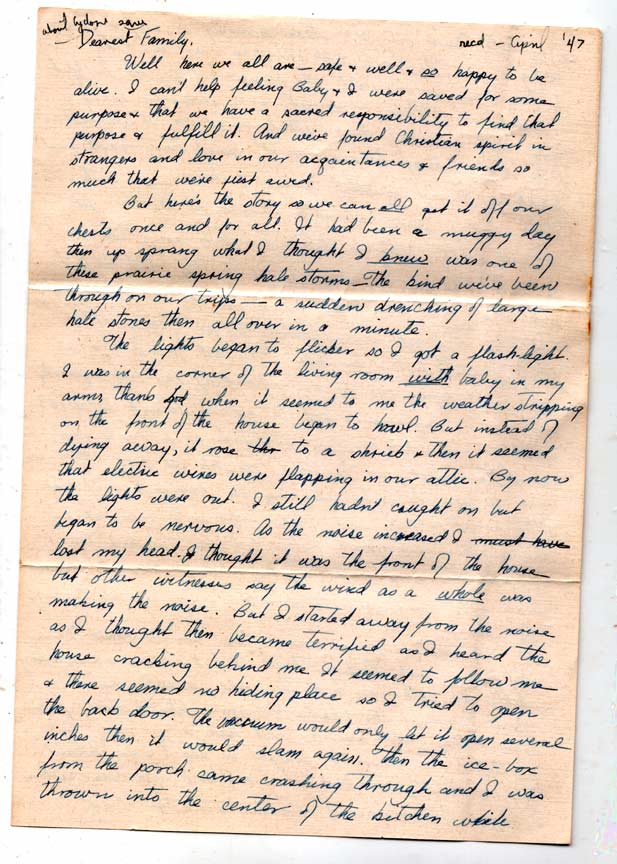 about cyclone
recd – April '47
– Dearest Family,
Well here we all are – safe & well & so happy to be
alive. I can't help feeling Baby & I were saved for some
purpose & that we have a sacred responsibility to find that
purpose & fulfill it. And we've found Christian spirit in
strangers and love in our acquaintances & friends so
much that we're just awed.
But here's the story so we can all get it off our
chests once and for all. It had been a muggy day
then up sprang what I thought I knew was one of
these prairie spring hale storms – The kind we've been
through on our trips — a sudden drenching of large
hale stones then all over in a minute.
The lights began to flicker so I got a flash-light.
I was in the corner of the living room with baby in my
arms, thank God when it seemed to me the weather stripping
on the front of the house began to howl. But instead of
dying away, it rose thr to a shriek & then it seemed
that electric wires were flapping in our attic. By now
the lights were out. I still hadn't caught on but
began to be nervous. As the noise increased I must have
lost my head. I thought it was the front of the house
but other witnesses say the wind as a whole was
making the noise. But I started away from the noise
as I thought then became terrified as I heard the
house cracking behind me. It seemed to follow me
& there seemed no hiding place so I tried to open
the back door. The vacuum would only let it open several
inches then it would slam again. Then the ice-box
from the porch came crashing through and I was
thrown into the center of the kitchen while